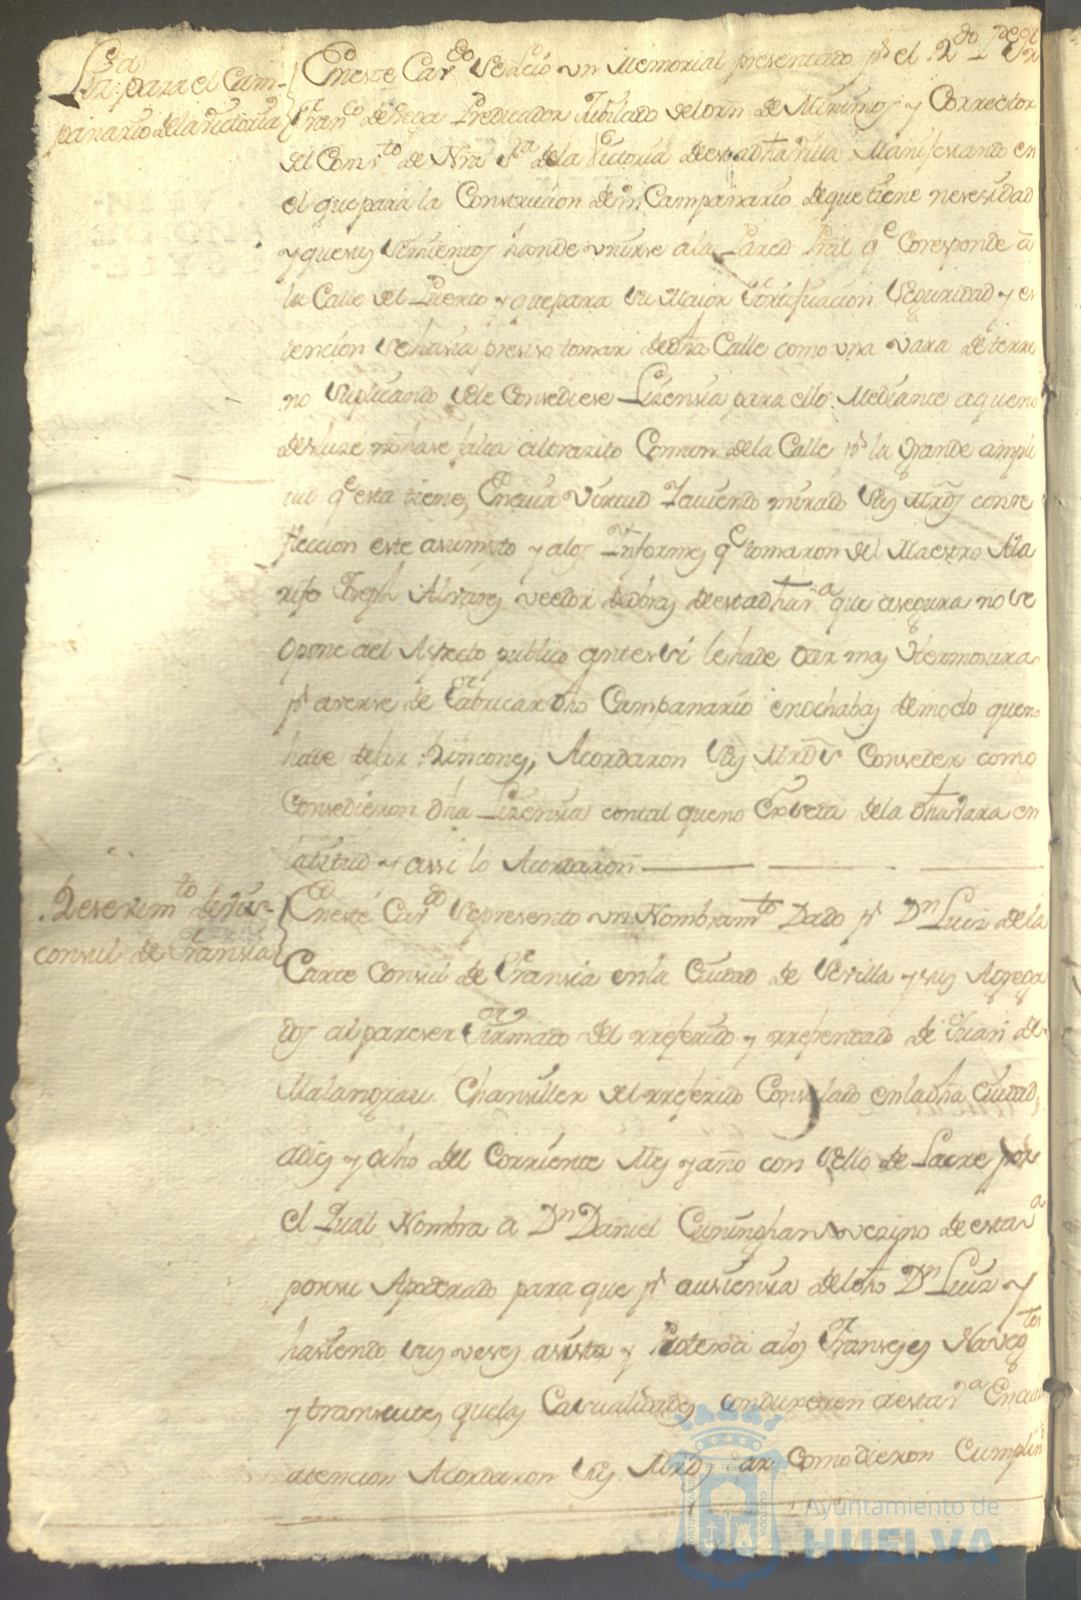 Liz.ª para el Cam-
panario de la Victoria
En este Cav.do se leio un Memorial presentado p.r el R.do P.
Fran.co de Vega Predicador Jubilado del orn de Minimos y Corrector
del Comv.to de Nra S.ra de la Victoria de esta dha villa Manifestando en
el que para la Construcion de un Campanario de que tiene nesesidad
y que sus simientos han de unirse a la Pared Pral q.e Coresponde a
la Calle del Puerto y que para su Maior fortificacion seguridad y es
tencion se hasia presiso tomar de dha Calle como una vara de terre
no suplicando se le Consediese Lizensia para ello Mediante a que no
desluze ni hase falta al transito Comun de la Calle p.r la grande ampli
tud q.e esta tiene, En cuia virtud Haviendo mirado sus Mrds con re
fleccion este asumpto y a los Informes q.e tomaron del Maestro Ala
rife Joseph Alvares veedor de obras de esta dha v.ª que asegura no se
opone al Aspecto publico antes si le ha de dar mas Hermosura
p.r averse de Fabricar dho Campanario en ochabas de modo que no
ha de dejar Rincones, Acordaron sus Mrds Conseder como
Consedieron dha Lizensia con tal que no Exseda de la dha vara en
latitud y assi lo Acordaron
Resevim.to de Vis-
consul de Fransia
En este Cav.do se presento un Nombram.to Dado p.r Dn Luis de la
Carte Consul de Fransia en la Ciudad de Sevilla y sus Agrega
dos al pareser Firmado del rreferido y rrefrendado de Juan de
Malangrau Chansiller del rreferido Consulado en la dha Ciudad,
a dies y ocho del Corriente Mes y año con sello de Lacre por
el Qual Nombra a Dn Daniel Cuningham vezino de esta v.ª
por su Apoderado para que p.r ausiensia del dho Dn Luis y
hasiendo sus veses asista y Proteja a los Franseses Naveg.tes
y transeuntes que las Casualidades condugeren a esta v.ª En cuia
atencion Acordaron sus Mrds dar como dieron Cumplim
Ayuntamiento de
HUELVA